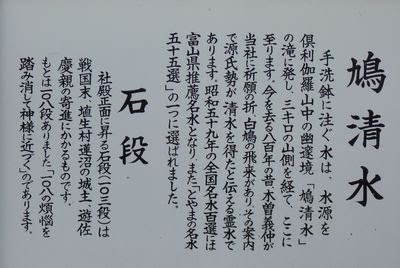 鳩清水
手洗鉢に注ぐ水は、水源を
倶利伽羅山中の幽邃境、「鳩清水」
の滝に発し、三キロの山側を経て、ここに
至ります。今を去る八百年の昔、木曽義仲が
当社に祈願の折、白鳩の飛来があり、その案内
で源氏勢が清水を得たと伝える霊水で
あります。昭和五十九年の全国名水百選には
富山県推薦名水となり、また「とやまの名水
五十五選」の一つに選ばれました。
石段
社殿正面に昇る石段(一〇三段)は
戦国末、埴生村蓮沼の城主、遊佐
慶親の寄進にかかるものです。
もとは一〇八段ありました。「一〇八の煩悩を
踏み消して神様に近づく」のであります。